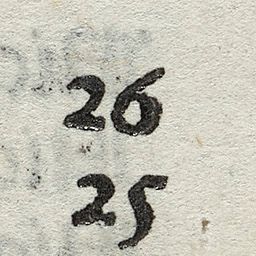 26
25